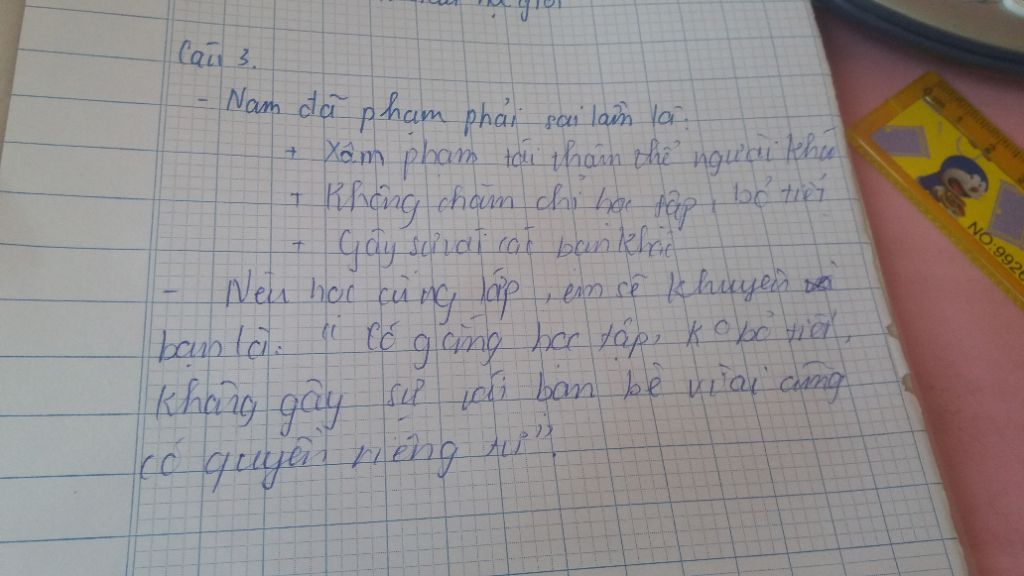 Câu 3.
- Nam đã phạm phải sai lầm là:
+ Xâm phạm tới thân thể người khá
+ Không chăm chỉ học tập, bỏ tiết
+ Gây sự với các bạn khác
- Nếu học cùng lớp, em sẽ khuyên
bạn là: " Cố gắng học tập, ko bỏ tiết,
không gây sự với bạn bè vì ai cũng
có quyền riêng tư".
NO:992